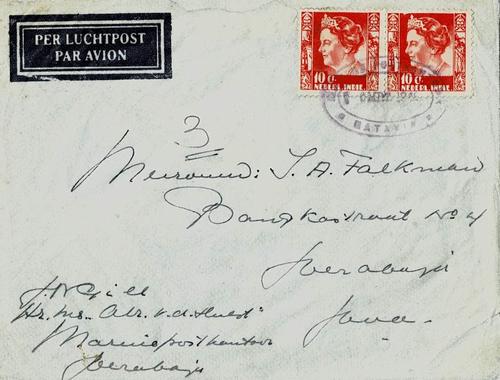 PER LUCHTPOST
PAR AVION
10 ct
NEDERL. INDIE
10 ct
NEDERL. INDIE
BATAVIA
3
Mevrouw: S. A. Falkman
Bangkastraat No 4
Soerabaja
Java.
Hr. Ms. "Abr. v. d. Hulst"
Marinepostkantoor
Soerabaja